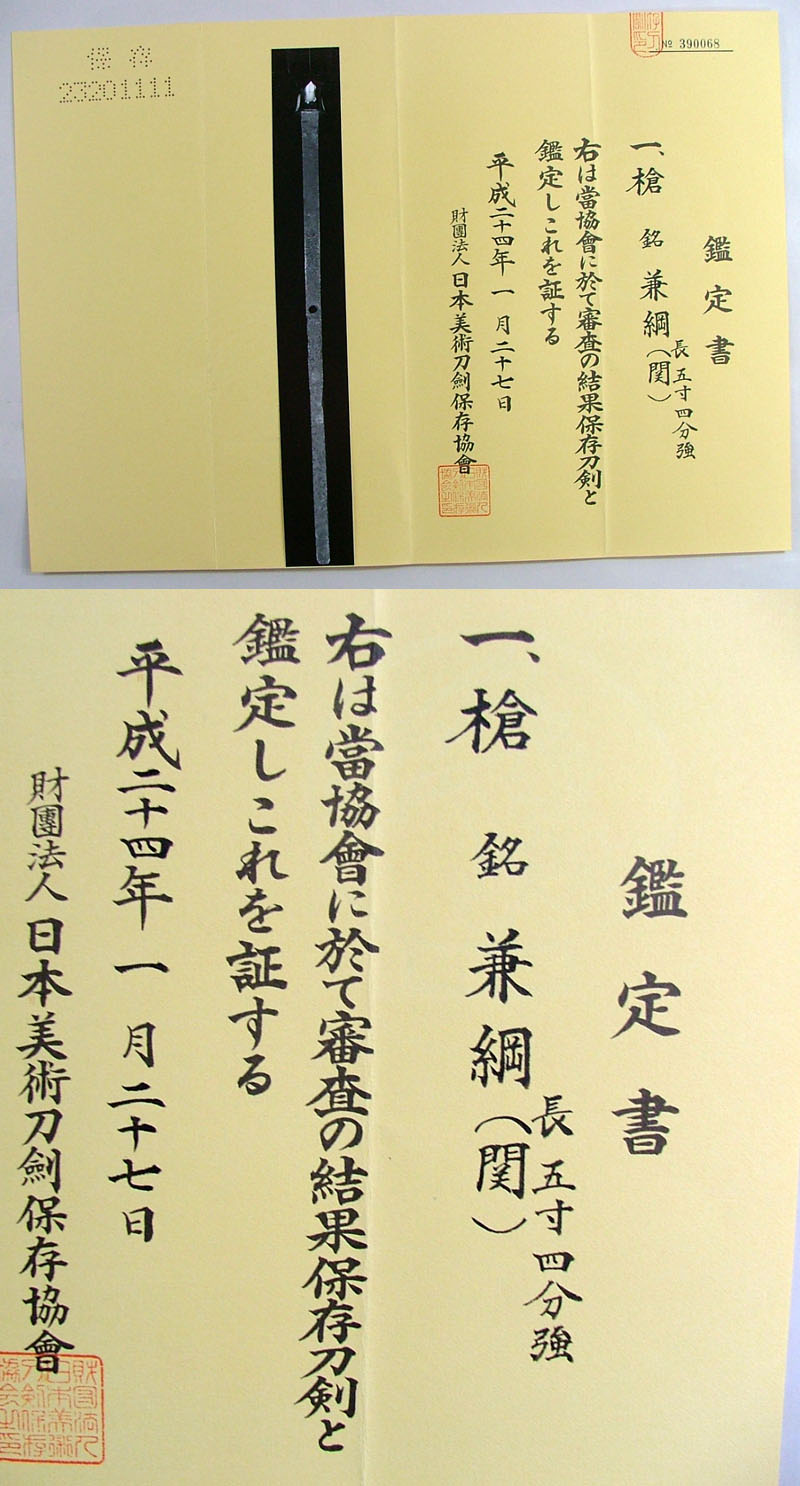 保存
23201111
№ 390068
鑑定書
一、槍 銘 兼綱(関)
長五寸四分強
右は當協會に於て審査の結果保存刀剣と
鑑定しこれを証する
平成二十四年一月二十七日
財團法人日本美術刀劍保存協會
鑑定書
一、槍 銘 兼綱(関)
長五寸四分強
右は當協會に於て審査の結果保存刀剣と
鑑定しこれを証する
平成二十四年一月二十七日
財團法人日本美術刀劍保存協會